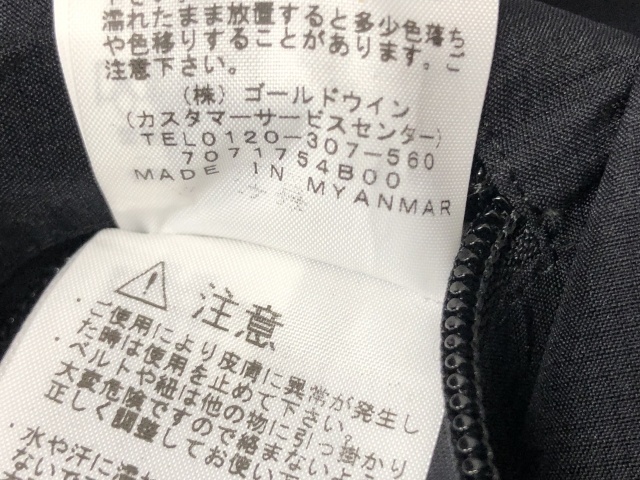 濡れたまま放置すると多少色落ち
や色移りすることがあります。ご
注意下さい。
(株) ゴールドウイン
(カスタマーサービスセンター)
TEL0120-307-560
7071754B00
MADE IN MYANMAR
注意
・ご使用により皮膚に異常が発生し
た時は使用を止めて下さい。
・ベルトや紐は他の物に引っ掛かり
大変危険ですので絡まないよう
正しく調整してお使い
・水や汗に濡
ないで